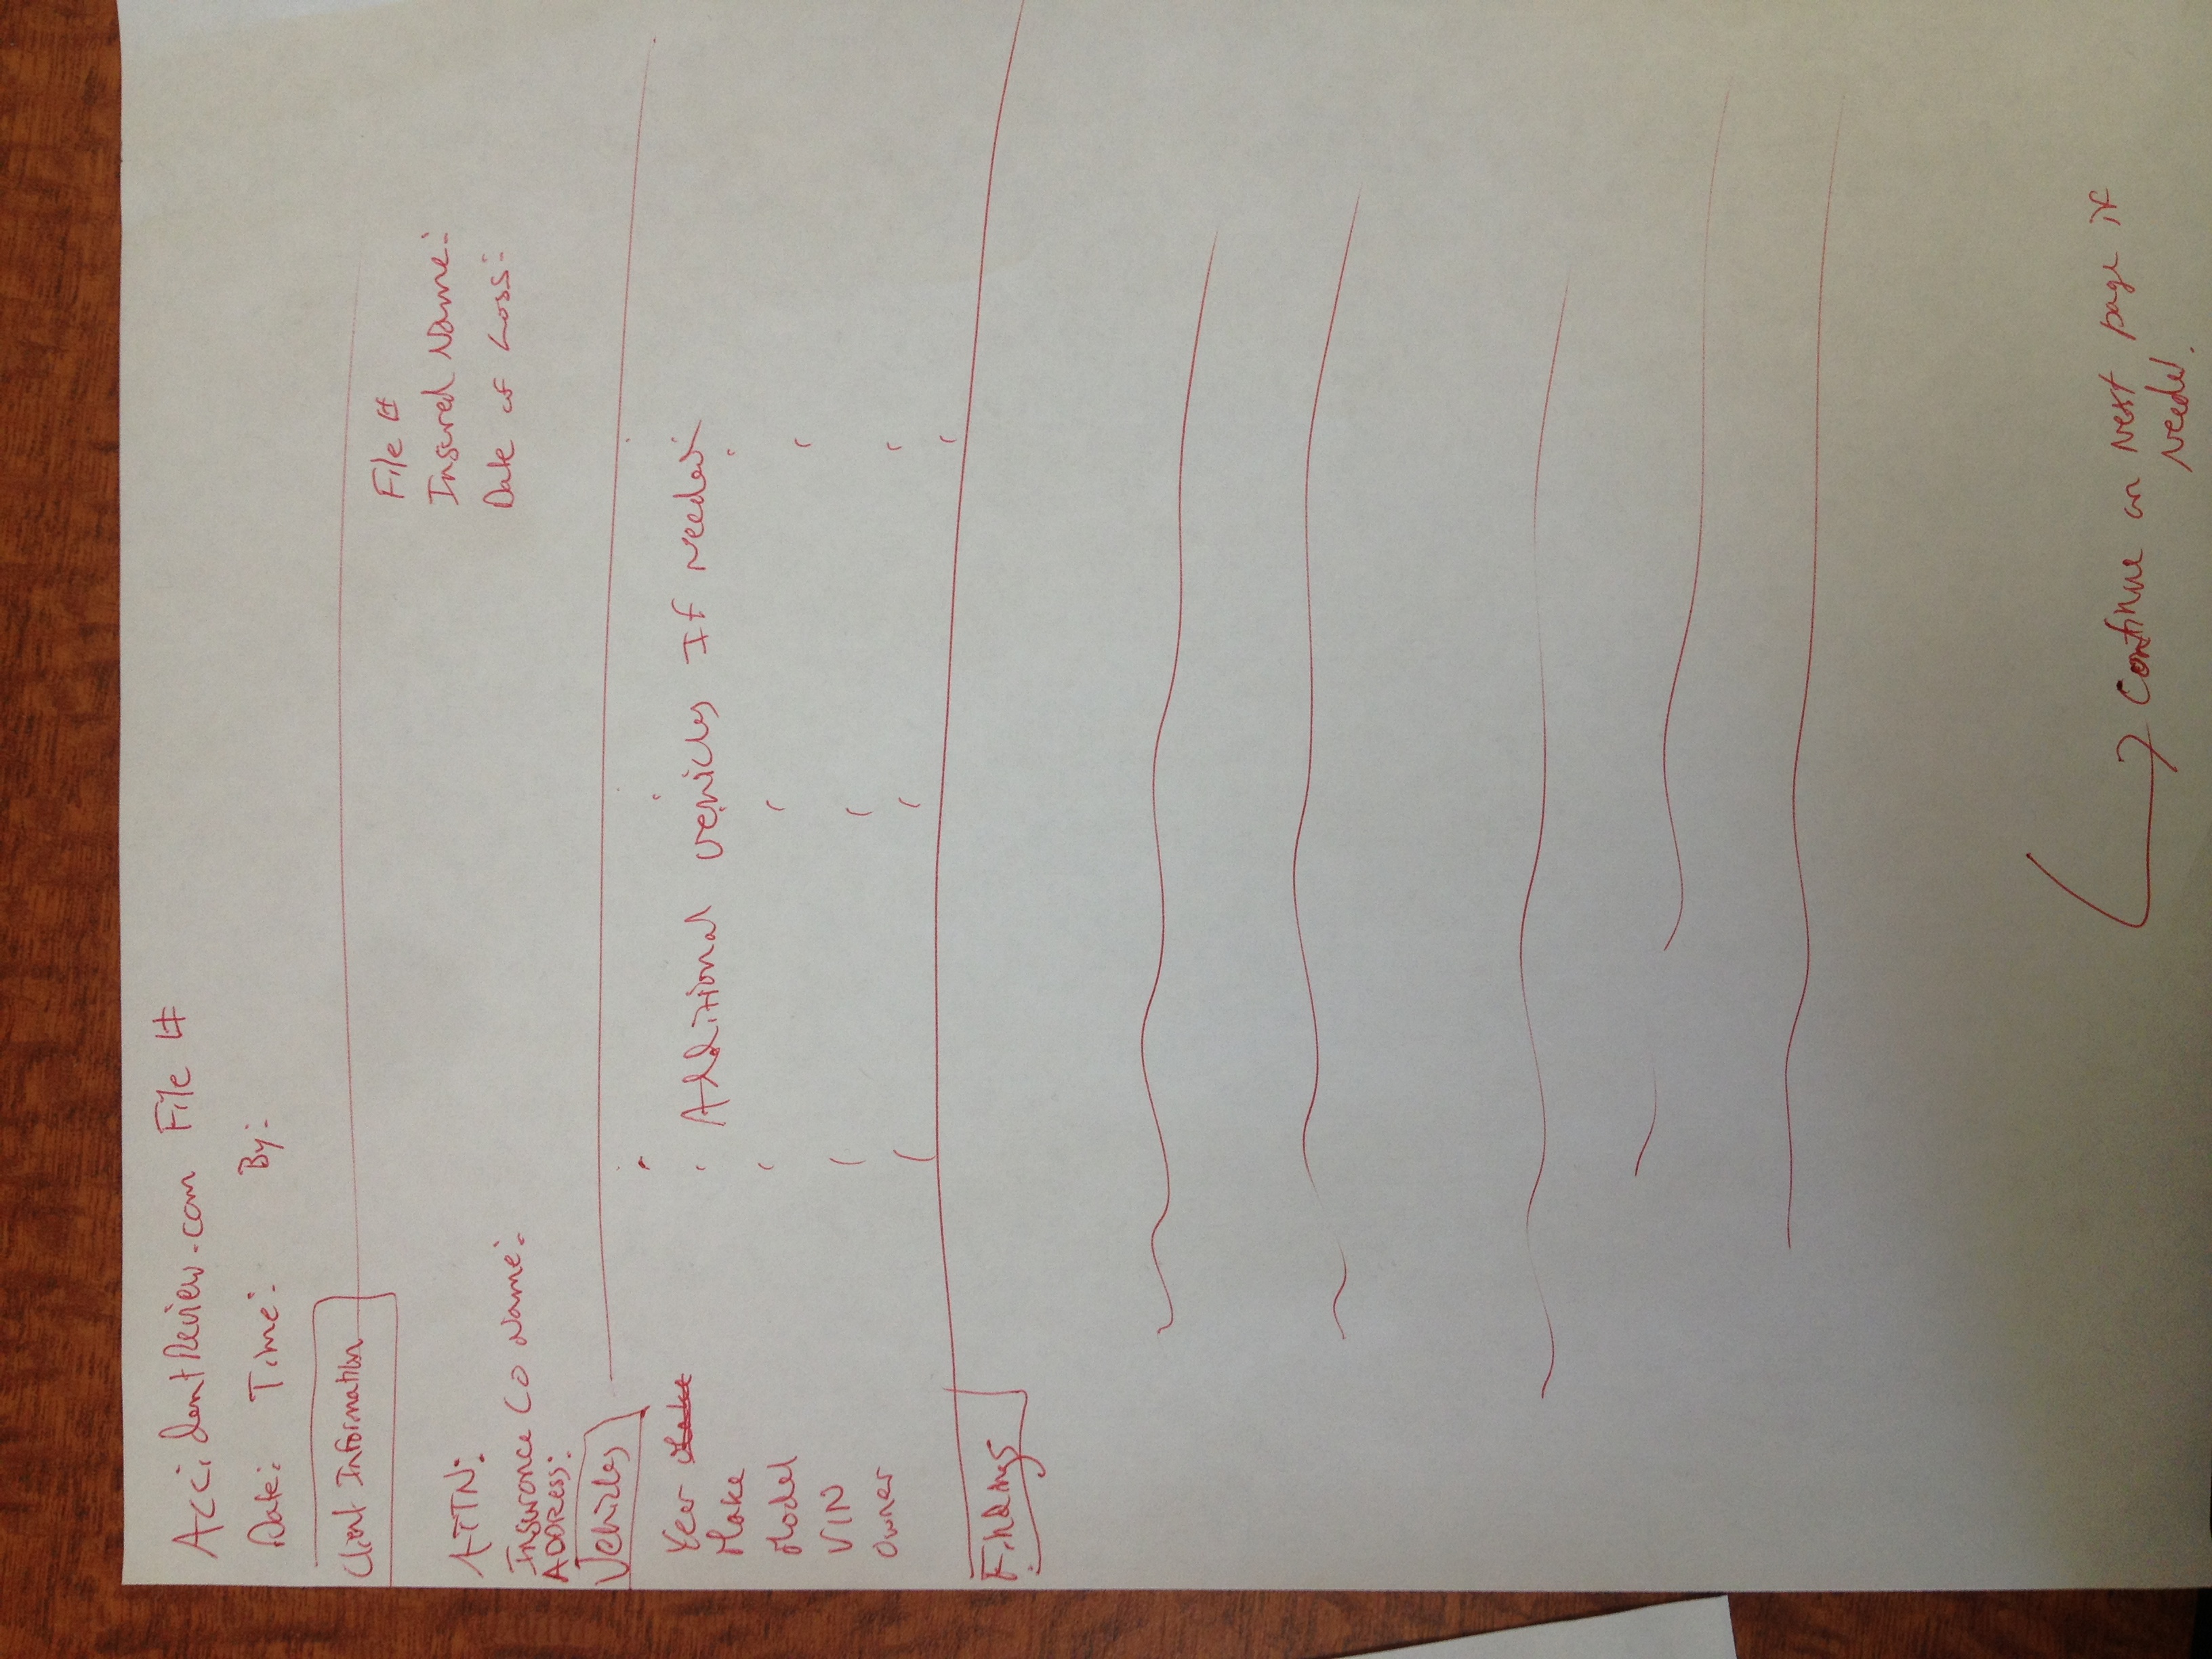 AccidentReview.com File #
Date: Time: By:
Client Information
File #
Insured Name:
Date of Loss:
ATTN:
Insurance Co Name:
ADDRESS:
Vehicles
Year
Additional vehicles If Needed
Make
Model
VIN
Owner
Findings
Continue on Next page if
Needed.